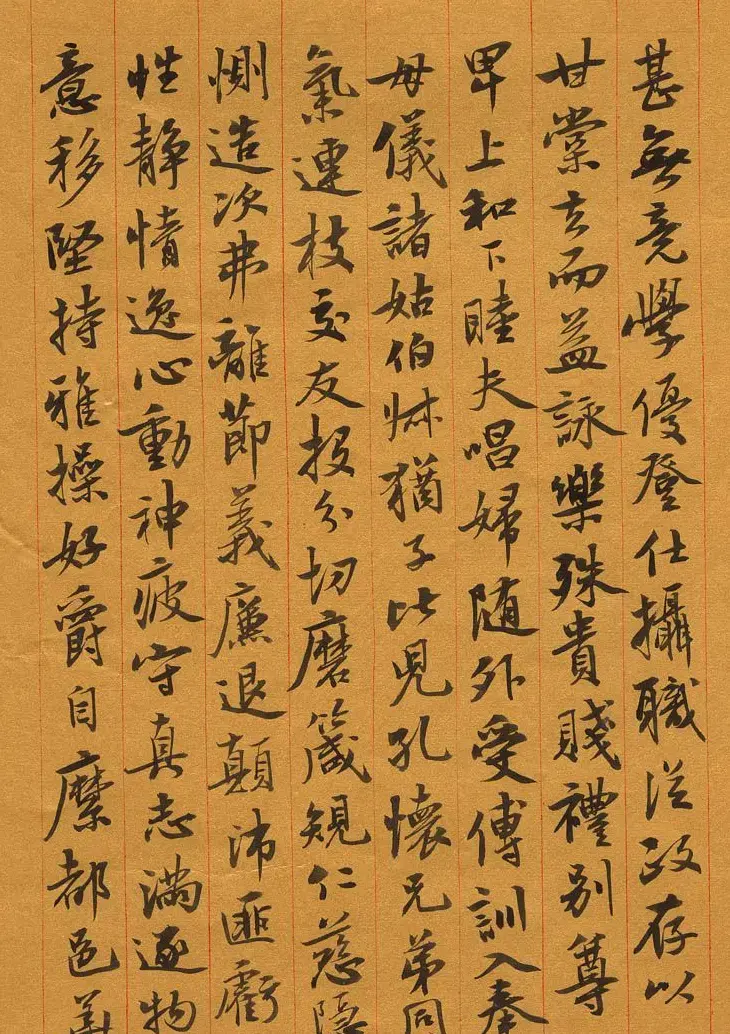 甚無竟學優登仕攝職從政存以
甘棠去而益詠樂殊貴賤禮別尊
卑上和下睦夫唱婦随外受傅訓入奉
母儀諸姑伯叔猶子比兒孔懷兄弟同
氣連枝交友投分切磨箴規仁慈隱
惻造次弗離節義廉退顛沛匪虧
性静情逸心動神疲守真志滿逐物
意移堅持雅操好爵自縻都邑華